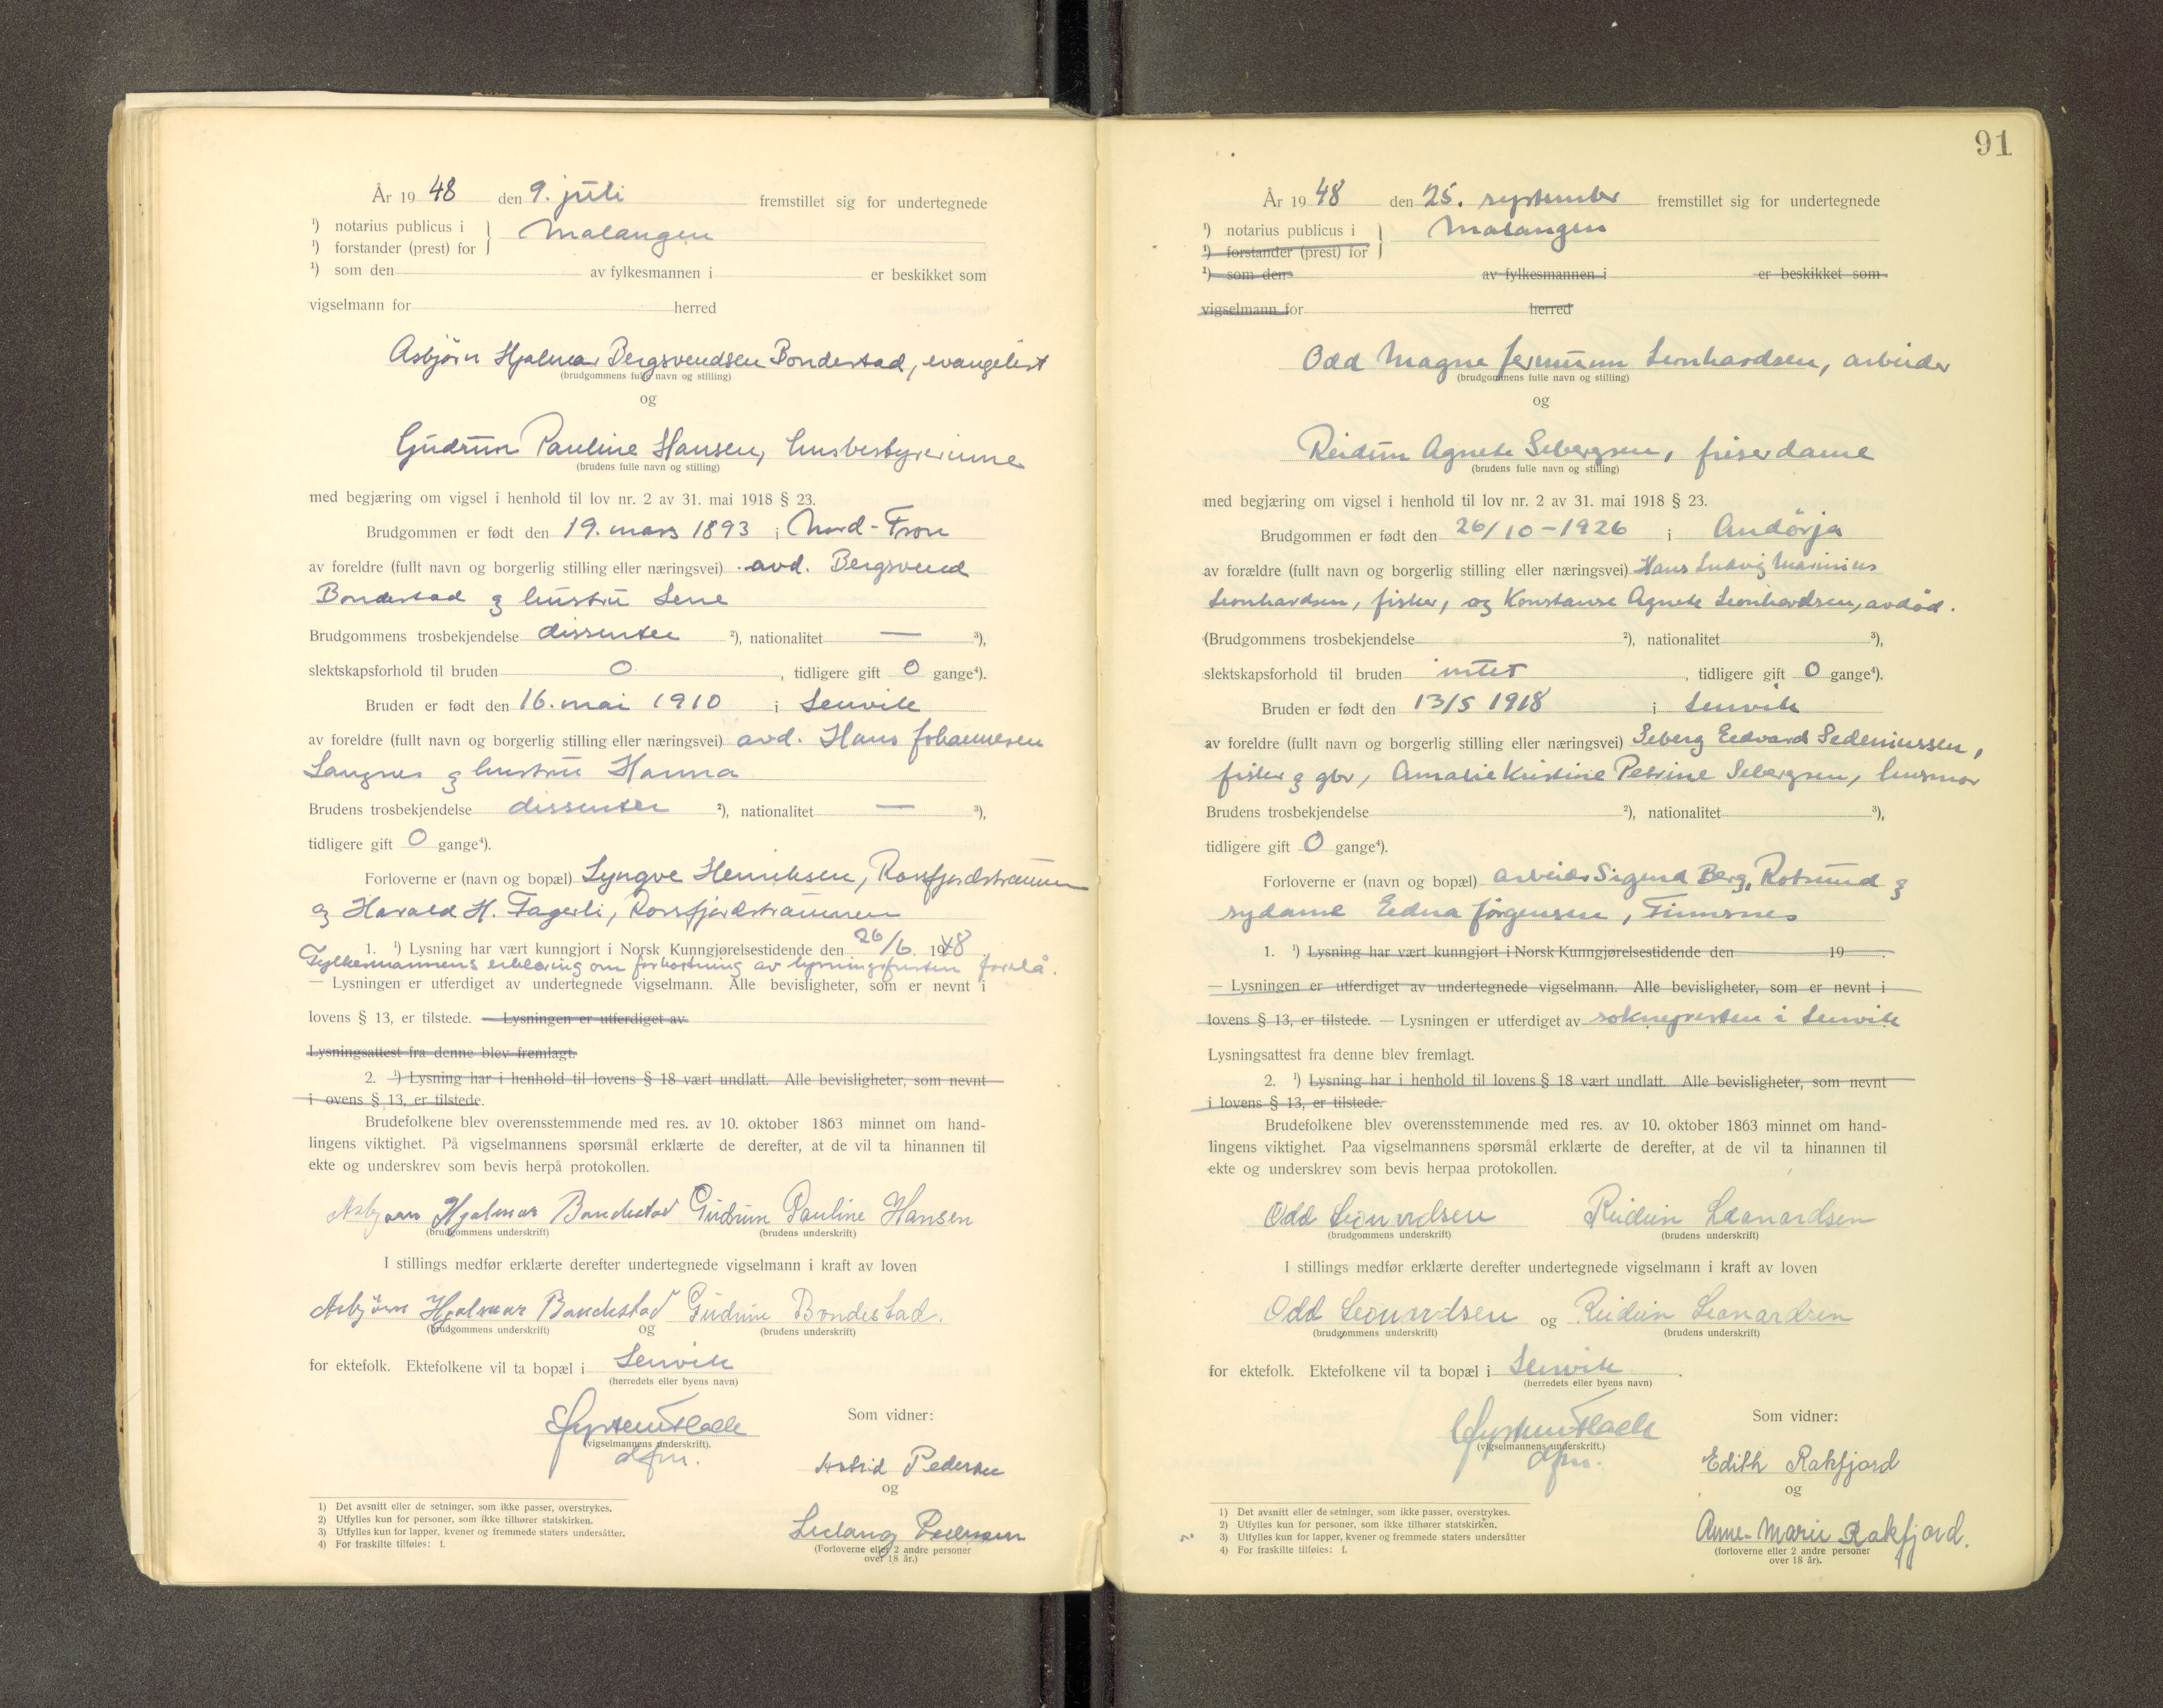 År 19 48 den 9. juli fremstillet sig for undertegnede
¹) notarius publicus i
¹) forstander (prest) for } Malangen
¹) som den av fylkesmannen i er beskikket som
vigselmann for herred
Asbjørn Hjalmar Bergsvendsen Bondestad, evangelist
(brudgommens fulle navn og stilling)
og
Gudrun Pauline Hansen, husbestyrerinne
(brudens fulle navn og stilling)
med begjæring om vigsel i henhold til lov nr. 2 av 31. mai 1918 § 23.
Brudgommen er født den 19. mars 1893 i Nord-Fron
av foreldre (fullt navn og borgerlig stilling eller næringsvei) avd. Bergsvend
Bondestad og hustru Lene
Brudgommens trosbekjendelse dissenter ²), nationalitet — ³),
slektskapsforhold til bruden 0, tidligere gift 0 gange⁴).
Bruden er født den 16. mai 1910 i Lenvik
av foreldre (fullt navn og borgerlig stilling eller næringsvei) avd. Hans Johannesen
Langnes og hustru Hanna
Brudens trosbekjendelse dissenter ²), nationalitet — ³),
tidligere gift 0 gange⁴).
Forloverne er (navn og bopæl) Lyngve Henriksen, Rossfjordstraumen
og Harald H. Fagerli, Rossfjordstraumen
1. ¹) Lysning har vært kunngjort i Norsk Kunngjørelsestidende den 26/6. 1948
Fylkesmannens erklæring om forkortning av lysningsfristen forelå.
— Lysningen er utferdiget av undertegnede vigselmann. Alle bevisligheter, som er nevnt i
lovens § 13, er tilstede. — Lysningen er utferdiget av
Lysningsattest fra denne blev fremlagt.
2. ¹) Lysning har i henhold til lovens § 18 vært undlatt. Alle bevisligheter, som nevnt
i ovens § 13, er tilstede.
Brudefolkene blev overensstemmende med res. av 10. oktober 1863 minnet om hand-
lingens viktighet. På vigselmannens spørsmål erklærte de derefter, at de vil ta hinannen til
ekte og underskrev som bevis herpå protokollen.
Asbjørn Hjalmar Bondestad Gudrun Pauline Hansen
(brudgommens underskrift) (brudens underskrift)
I stillings medfør erklærte derefter undertegnede vigselmann i kraft av loven
Asbjørn Hjalmar Bondestad Gudrun Bondestad.
(brudgommens underskrift) og (brudens underskrift)
for ektefolk. Ektefolkene vil ta bopæl i Lenvik
(herredets eller byens navn)
Som vidner:
(vigselmannens underskrift).
dfm.
Astrid Pedersen
og
Pedersen
(Forloverne eller 2 andre personer
over 18 år.)
1) Det avsnitt eller de setninger, som ikke passer, overstrykes.
2) Utfylles kun for personer, som ikke tilhører statskirken.
3) Utfylles kun for lapper, kvener og fremmede staters undersåtter.
4) For fraskilte tilføies: f.
91
År 19 48 den 25. september fremstillet sig for undertegnede
¹) notarius publicus i
¹) forstander (prest) for } Malangen
¹) som den av fylkesmannen i er beskikket som
vigselmann for herred
Odd Magne Jermunn Leonhardsen, arbeider
(brudgommens fulle navn og stilling)
og
Reidun Agnete Sebergsen, friserdame
(brudens fulle navn og stilling)
med begjæring om vigsel i henhold til lov nr. 2 av 31. mai 1918 § 23.
Brudgommen er født den 26/10-1926 i Andörja
av forældre (fullt navn og borgerlig stilling eller næringsvei) Hans Ludvig Marinius
Leonhardsen, fisker, og Konstanse Agnete Leonhardsen, avdød.
(Brudgommens trosbekjendelse ²), nationalitet ³),
slektskapsforhold til bruden intet, tidligere gift 0 gange⁴).
Bruden er født den 13/5 1918 i Lenvik
av foreldre (fullt navn og borgerlig stilling eller næringsvei) Seberg Edvard Sedeniussen,
fisker og gbr, Amalie Kristine Petrine Sebergsen, husmor
Brudens trosbekjendelse ²), nationalitet ³),
tidligere gift 0 gange⁴).
Forloverne er (navn og bopæl) arbeider Sigurd Berg, Rotsund og
sydame Edna Jørgensen, Finnsnes
1. ¹) Lysning har vært kunngjort i Norsk Kunngjørelsestidende den 19 .
— Lysningen er utferdiget av undertegnede vigselmann. Alle bevisligheter, som er nevnt i
lovens § 13, er tilstede. — Lysningen er utferdiget av soknepresten i Lenvik
Lysningsattest fra denne blev fremlagt.
2. ¹) Lysning har i henhold til lovens § 18 vært undlatt. Alle bevisligheter, som nevnt
i lovens § 13, er tilstede.
Brudefolkene blev overensstemmende med res. av 10. oktober 1863 minnet om hand-
lingens viktighet. Paa vigselmannens spørsmål erklærte de derefter, at de vil ta hinannen til
ekte og underskrev som bevis herpaa protokollen.
Odd Leonardsen Reidun Leonardsen
(brudgommens underskrift) (brudens underskrift)
I stillings medfør erklærte derefter undertegnede vigselmann i kraft av loven
Odd Leonardsen og Reidun Leonardsen
(brudgommens underskrift) (brudens underskrift)
for ektefolk. Ektefolkene vil ta bopæl i Lenvik.
(herredets eller byens navn)
Som vidner:
(vigselmannens underskrift.)
dfm.
Edith Rakfjord
og
Anne-Marie Rakfjord.
(forloverne eller 2 andre personer
over 18 år).
1) Det avsnitt eller de setninger, som ikke passer, overstrykes.
2) Utfylles kun for personer, som ikke tilhører statskirken.
3) Utfylles kun for lapper, kvener og fremmede staters undersåtter
4) For fraskilte tilføies: f.